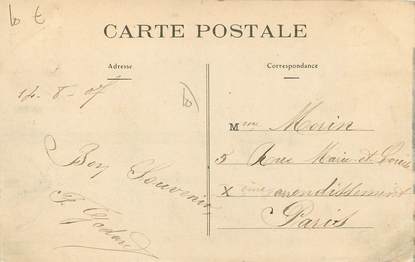 b t
CARTE POSTALE
Adresse
Correspondance
14-8-07
b
Mme Morin
5 Rue Marie et Louise
Bon Souvenir
X ème arrondissement
Paris